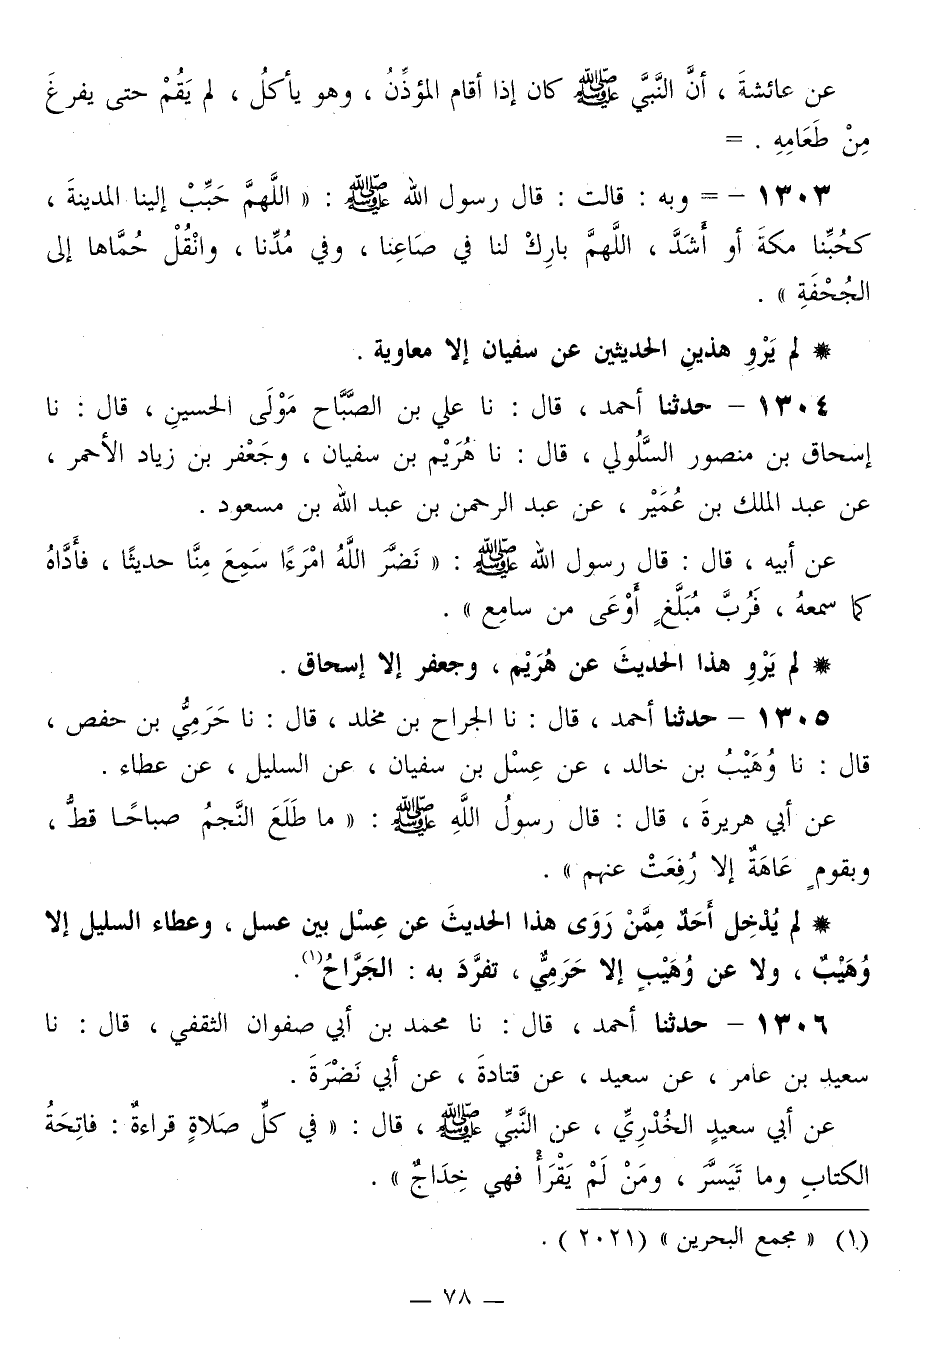 عن عائشةَ ، أنَّ النَّبيَّ ﷺ كان إذا أقام المؤذِّنُ ، وهو يأكلُ ، لم يَقُمْ حتى يفرغَ
مِنْ طَعَامِهِ . =
١٣٠٣ - = وبه : قالت : قال رسول الله ﷺ : « اللَّهمَّ حَبِّبْ إلينا المدينةَ ،
كحُبِّنا مكةَ أو أَشَدَّ ، اللَّهمَّ بارِكْ لنا في صَاعِنا ، وفي مُدِّنا ، وانْقُلْ حُمَّاها إلى
الجُحْفَةِ » .
* لم يَرْوِ هذينِ الحديثين عن سفيان إلا معاوية .
١٣٠٤ - حدثنا أحمد ، قال : نا علي بن الصَّبَّاح مَوْلَى الحسينِ ، قال : نا
إسحاق بن منصور السَّلُولي ، قال : نا هُرَيْم بن سفيان ، وجَعْفر بن زياد الأحمر ،
عن عبد الملك بن عُمَيْر ، عن عبد الرحمن بن عبد الله بن مسعود .
عن أبيه ، قال : قال رسول الله ﷺ : « نَضَّرَ اللَّهُ امْرَءًا سَمِعَ مِنَّا حديثًا ، فأَدَّاهُ
كما سمعهُ ، فَرُبَّ مُبَلَّغٍ أَوْعَى من سامِع » .
* لم يَرْوِ هذا الحديثَ عن هُرَيْم ، وجعفر إلا إسحاق .
١٣٠٥ - حدثنا أحمد ، قال : نا الجراح بن مخلد ، قال : نا حَرَمِيُّ بن حفص ،
قال : نا وُهَيْبُ بن خالد ، عن عِسْل بن سفيان ، عن السليل ، عن عطاء .
عن أبي هريرةَ ، قال : قال رسولُ اللَّهِ ﷺ : « ما طَلَعَ النَّجمُ صباحًا قطُّ ،
وبقومٍ عَاهَةٌ إلا رُفِعَتْ عنهم » .
* لم يُدْخِل أَحَدٌ مِمَّنْ رَوَى هذا الحديثَ عن عِسْل بين عسل ، وعطاء السليل إلا
وُهَيْبٌ ، ولا عن وُهَيْبٍ إلا حَرَمِيٌّ ، تفرَّدَ به : الجَرَّاحُ(١).
١٣٠٦ - حدثنا أحمد ، قال : نا محمد بن أبي صفوان الثقفي ، قال : نا
سعيد بن عامر ، عن سعيد ، عن قتادةَ ، عن أبي نَضْرَةَ .
عن أبي سعيدٍ الخُدْرِيِّ ، عن النَّبيِّ ﷺ ، قال : « في كلِّ صَلاةٍ قراءةٌ : فاتِحَةُ
الكتابِ وما تَيَسَّرَ ، ومَنْ لَمْ يَقْرَأْ فهي خِدَاجٌ » .
(١) « مجمع البحرين » (٢٠٢١ ) .
— ٧٨ —